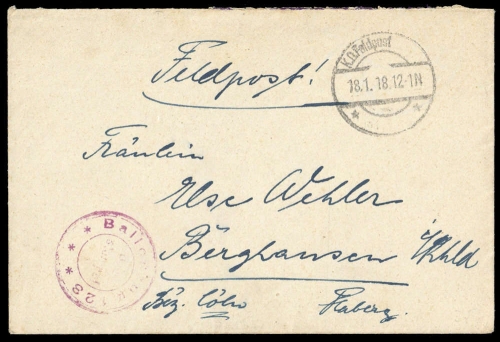 Feldpost!
K.D.Feldpost
18.1.18.12-1N
Fräulein
Else Wehler
Berghausen
Bez. Cöln
Ball 123